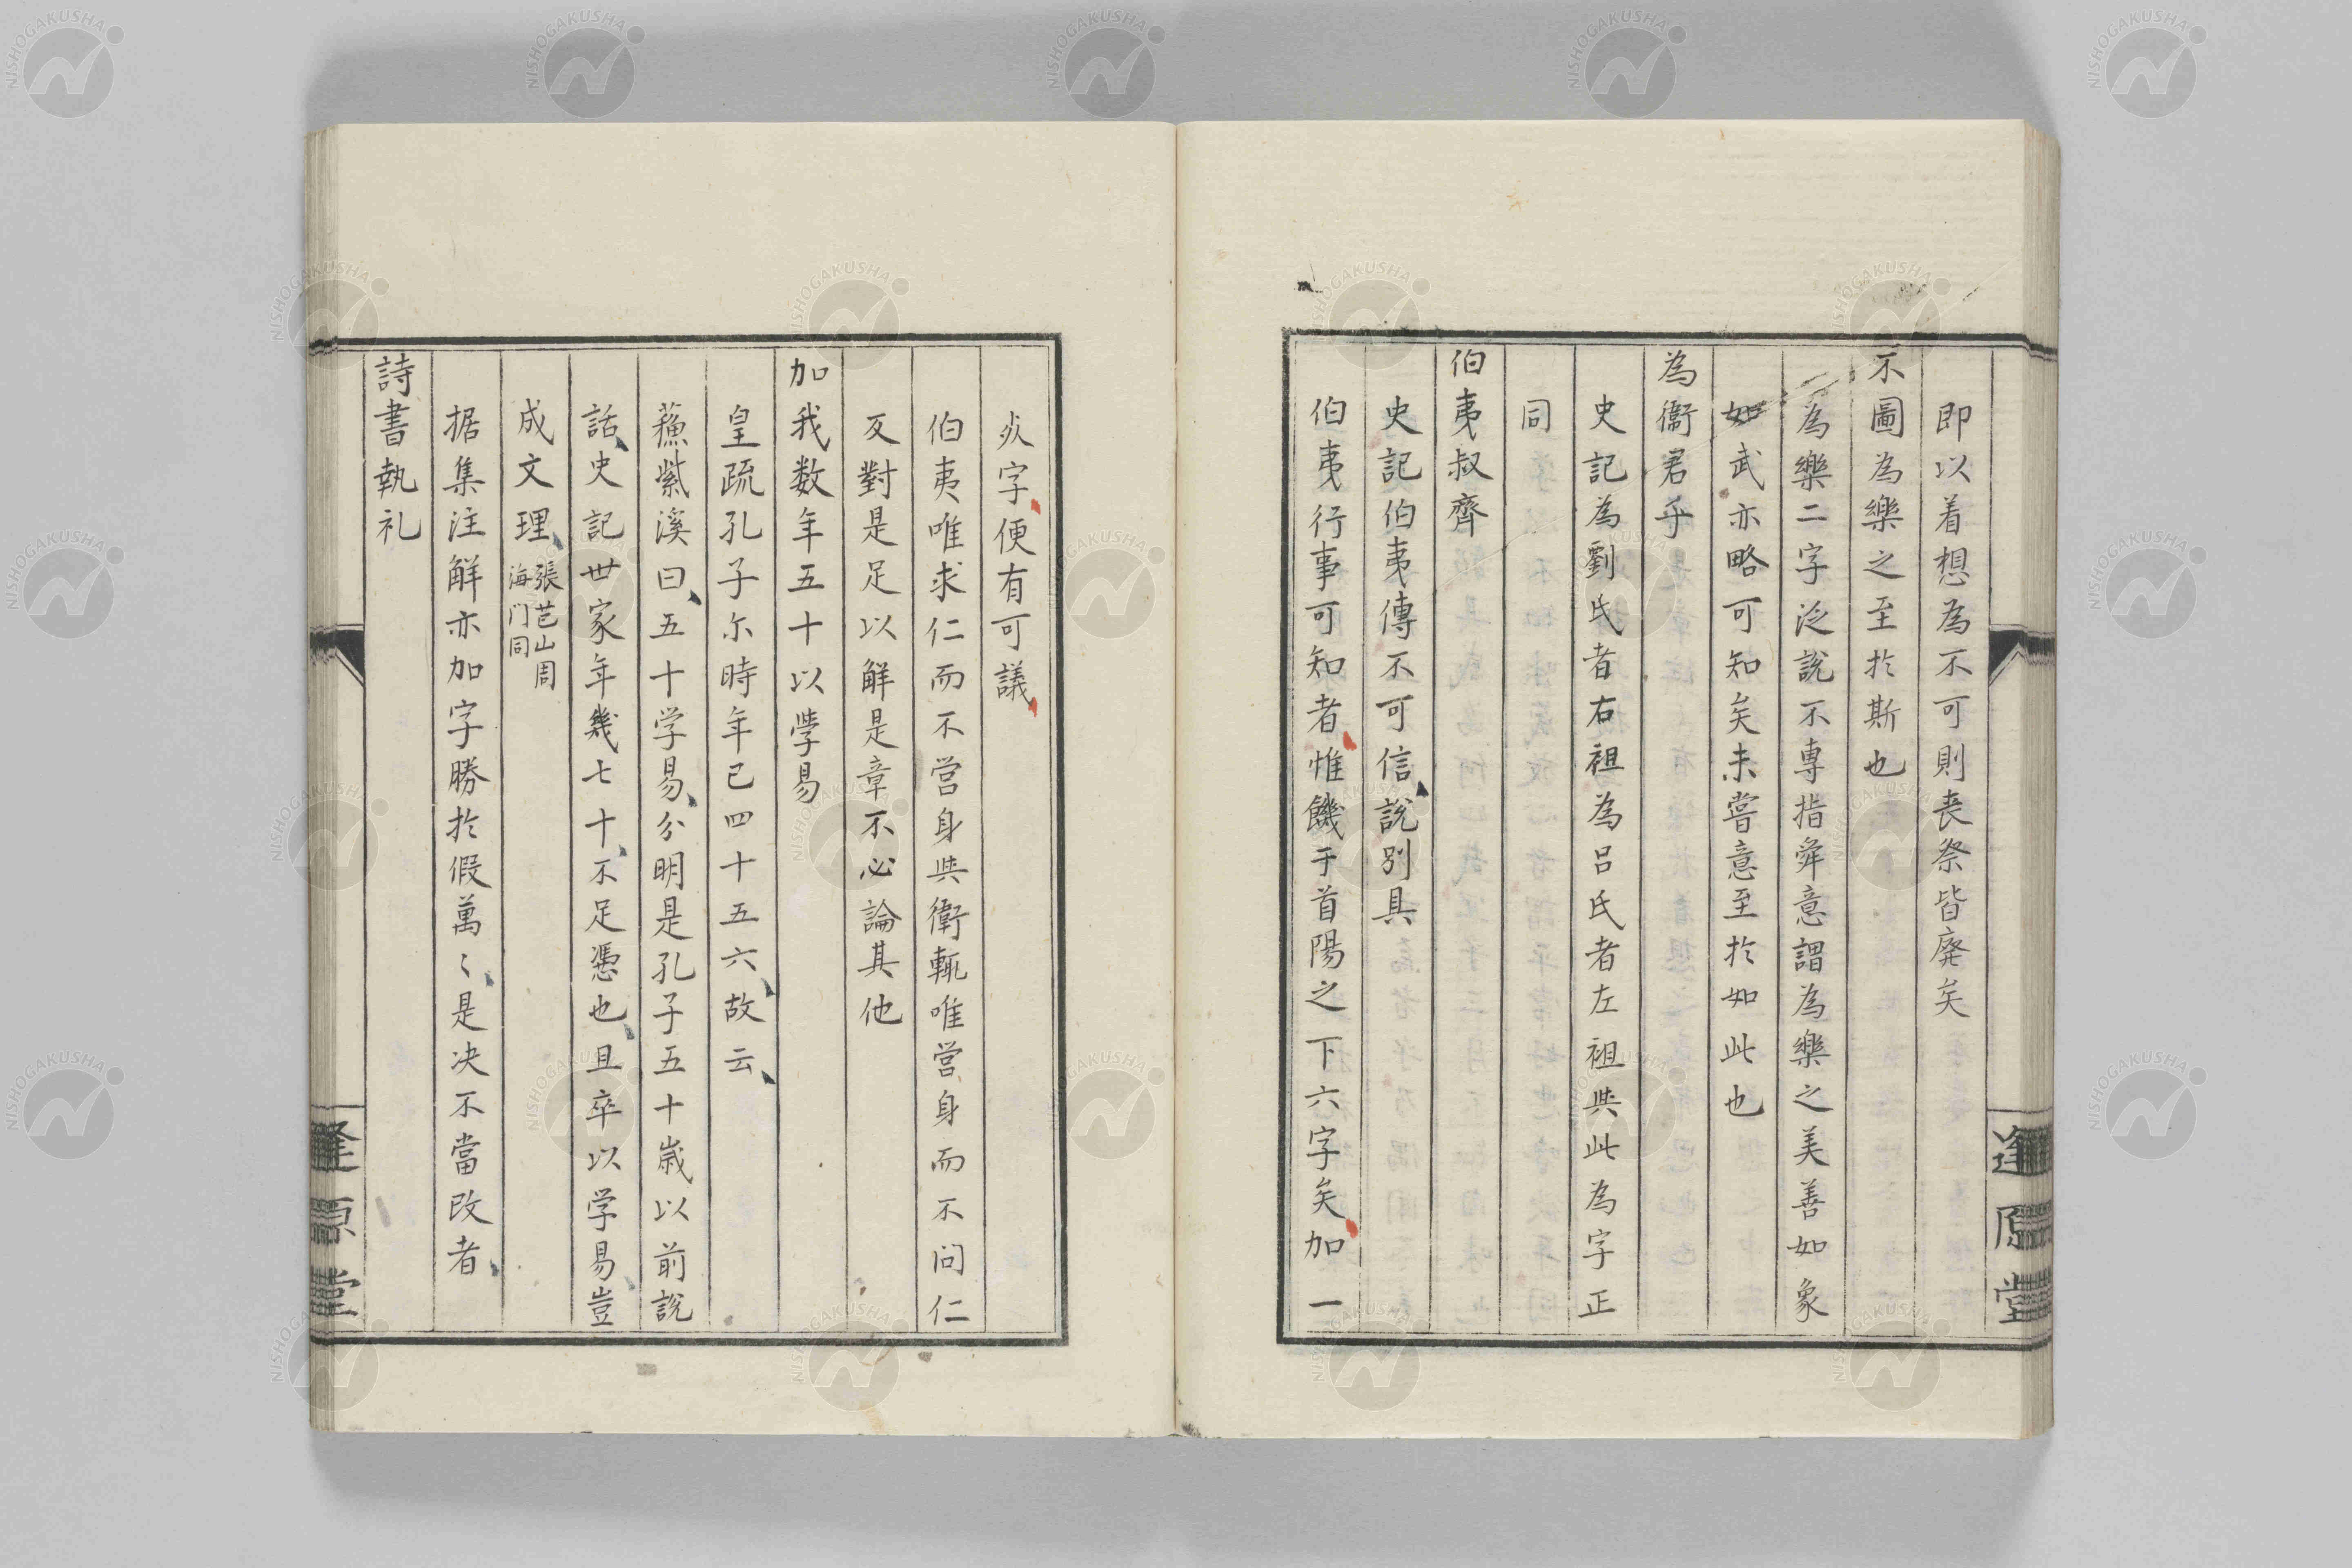 即以着想為不可則喪祭皆廃矣
不圖為樂之至於斯也
為樂二字泛説不専指舜意謂為樂之美善如象
如武亦略可知矣未嘗意至於如此也
為衞君乎
史記為劉氏者右袒為呂氏者左袒與此為字正
同
伯夷叔齊
史記伯夷傳不可信、説別具
伯夷行事可知者惟饑于首陽之下六字矣加一
字便有可議
伯夷唯求仁而不営身與衛輒唯営身而不问仁
反對是足以解是章不必論其他
加我数年五十以學易
皇疏孔子尔時年已四十五六、故云、
蘓紫溪曰、五十学易、分明是孔子五十歳以前説
話、史記世家年幾七十、不足憑也、且卒以学易、豈
成文理、張芑山周海门同
据集注解亦加字勝於假萬〻、是决不當改者、
詩書執礼
逢原堂
逢原堂
NISHOGAKUSHA